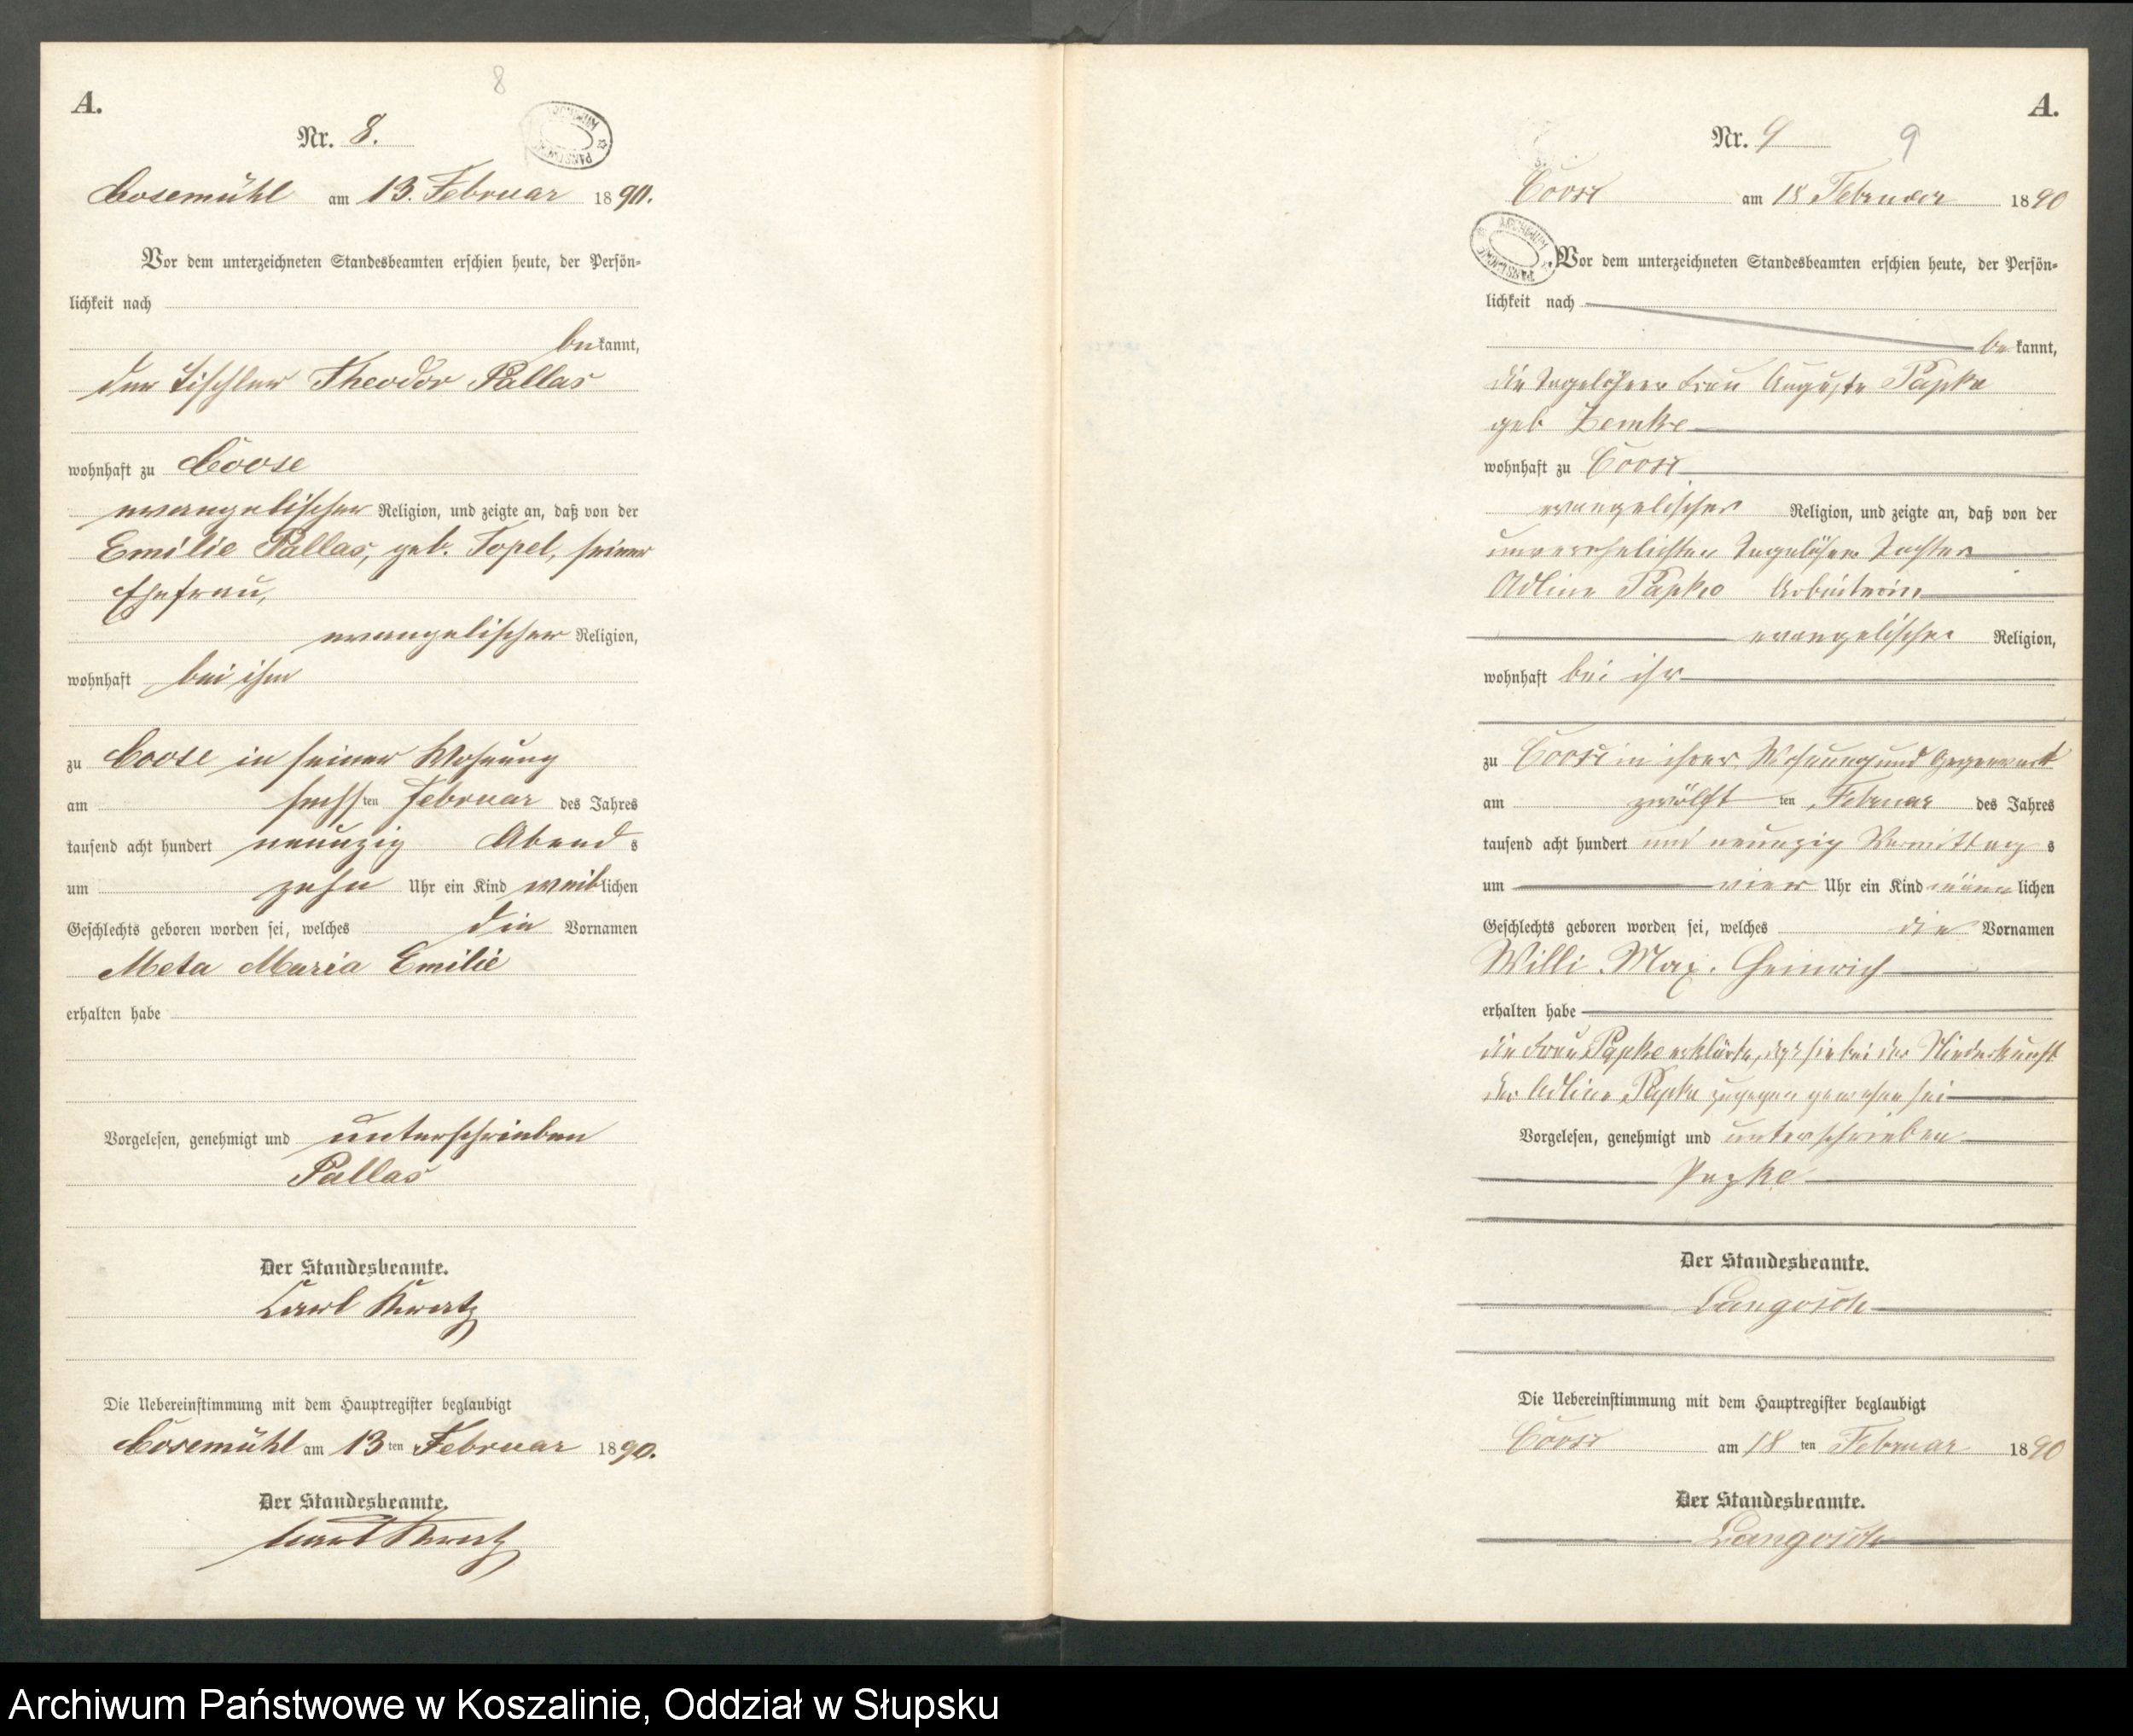 8
A.
Nr. 8.
Cosemühl am 13. Februar 1890.
Vor dem unterzeichneten Standesbeamten erschien heute, der Persön-
lichkeit nach
bekannt,
der Tischler Theodor Pallas
wohnhaft zu Coose
evangelischer Religion, und zeigte an, daß von der
Emilie Pallas, geb. Topel, seiner
Ehefrau,
evangelischer Religion,
wohnhaft bei ihm
zu Coose in seiner Wohnung
am sechsten Februar des Jahres
tausend acht hundert neunzig Abends
um zehn Uhr ein Kind weiblichen
Geschlechts geboren worden sei, welches die Vornamen
Meta Maria Emilie
erhalten habe
Vorgelesen, genehmigt und unterschrieben
Pallas
Der Standesbeamte.
Carl
Die Uebereinstimmung mit dem Hauptregister beglaubigt
Cosemühl am 13ten Februar 1890.
Der Standesbeamte.
Carl
A.
Nr. 9
9
Coose am 18 Februar 1890
Vor dem unterzeichneten Standesbeamten erschien heute, der Persön-
lichkeit nach
bekannt,
die Tagelöhner Frau Auguste Papke
geb Zemke
wohnhaft zu Coose
evangelischer Religion, und zeigte an, daß von der
unverehelichten Tagelöhner Tochter
Adline Papke Arbeiterin
evangelischer Religion,
wohnhaft bei ihr
zu Coose in ihrer Wohnung und Gegenwart
am zwölften Februar des Jahres
tausend acht hundert und neunzig Vormittags
um vier Uhr ein Kind männlichen
Geschlechts geboren worden sei, welches die Vornamen
Willi Max. Heinrich
erhalten habe
die Frau Papke erklärte, daß sie bei der Niederkunft
der Adline Papke zugegen gewesen sei
Vorgelesen, genehmigt und unterschrieben
Papke
Der Standesbeamte.
Langosch
Die Uebereinstimmung mit dem Hauptregister beglaubigt
Coose am 18ten Februar 1890
Der Standesbeamte.
Langosch
Archiwum Państwowe w Koszalinie, Oddział w Słupsku